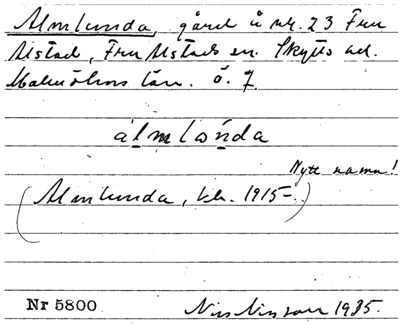 Almlunda, gård å nr. 23 Fru
Alstad, Fru Alstads sn. Skytts hd.
Malmöhus län. ö. 7.
álmlònda
Nytt namn!
(Almlunda, kb. 1915-.)
Nr 5800 Nils Nilsson 1935.